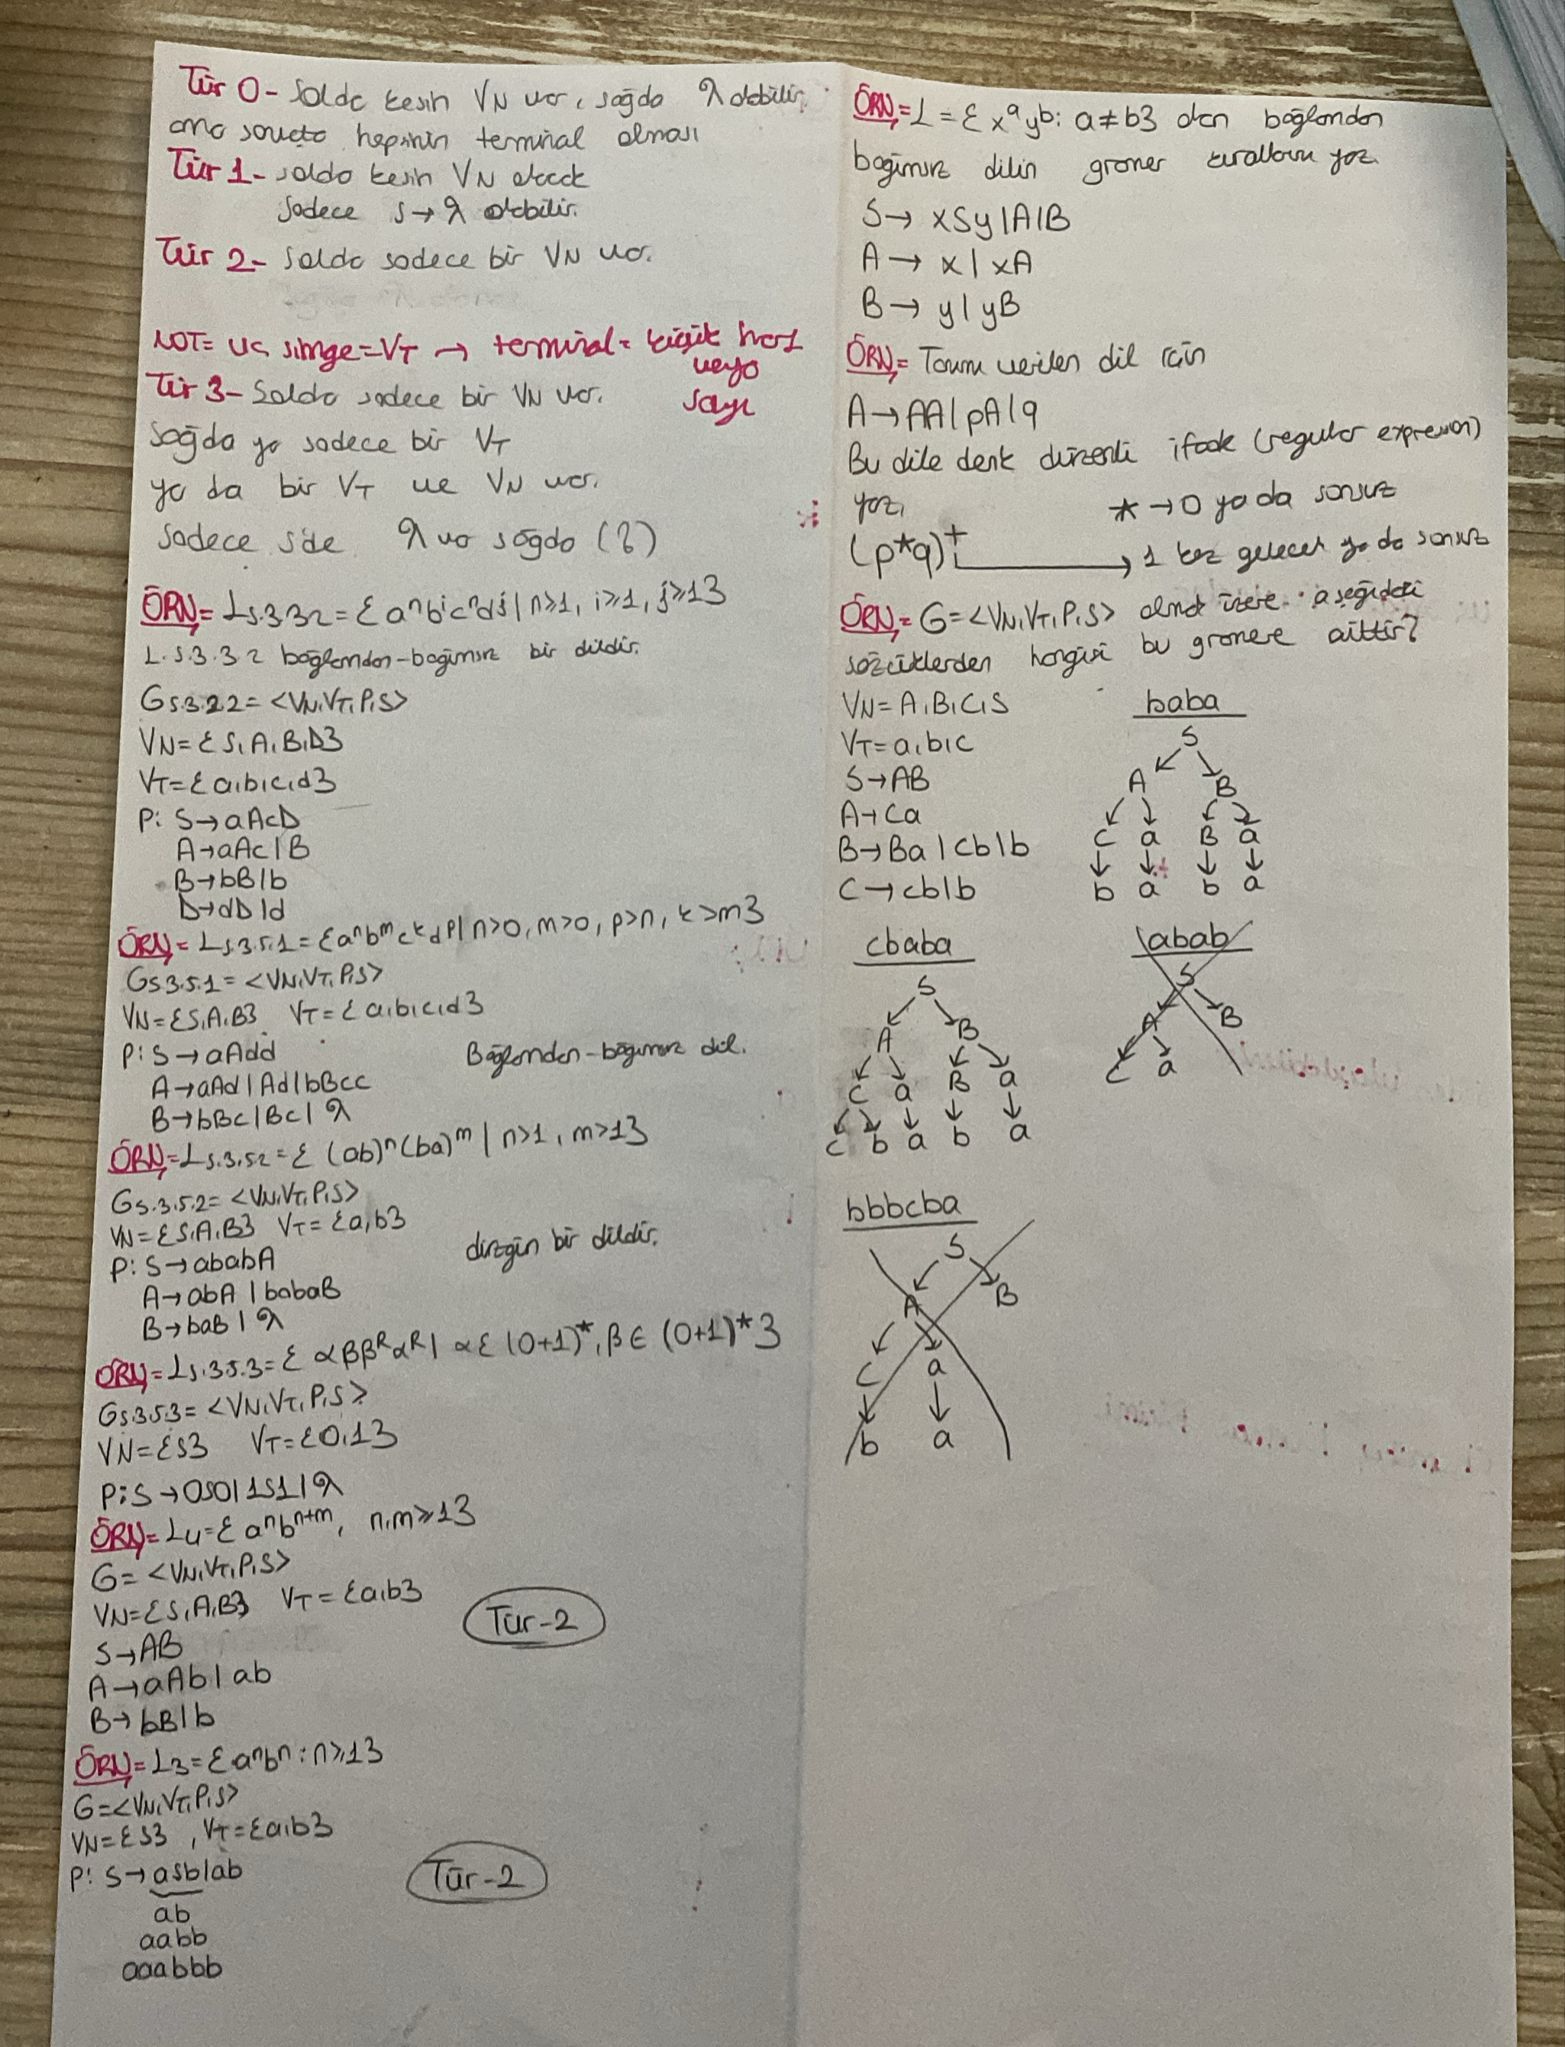 Tür 0- Solda kesin VN var, sağda λ olabilir.
ama sonuçta hepsinin terminal olması
Tür 1- solda kesin VN olacak
Sadece S→λ olabilir.
Tür 2- Solda sadece bir VN var.
NOT= uç simge=VT → terminal= küçük harf
veya
sayı
Tür 3- Solda sadece bir VN var.
Sağda ya sadece bir VT
ya da bir VT ve VN var.
Sadece S'de λ var sağda (?)
ÖRN= LS.3.3.2={a^n b^i c^n d^j | n≥1, i≥1, j≥1}
L.S.3.3.2 bağlamdan-bağımsız bir dildir.
GS.3.2.2=<VN,VT,P,S>
VN={S,A,B,D}
VT={a,b,c,d}
P: S→aAcD
A→aAc|B
B→bB|b
D→dD|d
ÖRN= LS.3.5.1={a^n b^m c^k d^p | n>0, m>0, p>n, k>m}
GS3.5.1=<VN,VT,P,S>
VN={S,A,B} VT={a,b,c,d}
P: S→aAdd
Bağlamdan-bağımsız dil.
A→aAd|Ad|bBcc
B→bBc|Bc|λ
ÖRN=LS.3.5.2={(ab)^n(ba)^m | n>1, m>1}
GS.3.5.2=<VN,VT,P,S>
VN={S,A,B} VT={a,b}
düzgün bir dildir.
P: S→ababA
A→abA|babaB
B→baB|λ
ÖRN=LS.3.5.3={αββ^Rα^R | α∈(0+1)*, β∈(0+1)*}
GS.3.5.3=<VN,VT,P,S>
VN={S} VT={0,1}
P: S→0S0|1S1|λ
ÖRN=L4={a^n b^n+m, n,m≥1}
G=<VN,VT,P,S>
VN={S,A,B} VT={a,b}
Tür-2
S→AB
A→aAb|ab
B→bB|b
ÖRN=L3={a^n b^n : n≥1}
G=<VN,VT,P,S>
VN={S}, VT={a,b}
P: S→aSb|ab
Tür-2
ab
aabb
aaabbb
ÖRN=L={x^a y^b: a≠b} olan bağlamdan
bağımsız dilin gramer kurallarını yaz.
S→xSy|A|B
A→x|xA
B→y|yB
ÖRN= Tanımı verilen dil için
A→AA|pA|q
Bu dile denk düzenli ifade (regular expression)
yaz.
*→0 ya da sonsuz
(p*q)+ → 1 kez gelecek ya da sonsuz
ÖRN= G=<VN,VT,P,S> olmak üzere aşağıdaki
sözcüklerden hangisi bu gramere aittir?
VN=A,B,C,S
VT=a,b,c
S→AB
A→Ca
B→Ba|Cb|b
C→cb|b
baba
S
A B
C a B a
b a b a
cbaba
S
A B
C a B a
c b a b a
abab
S
A B
C a
bbbcba
S
A B
C a
b a